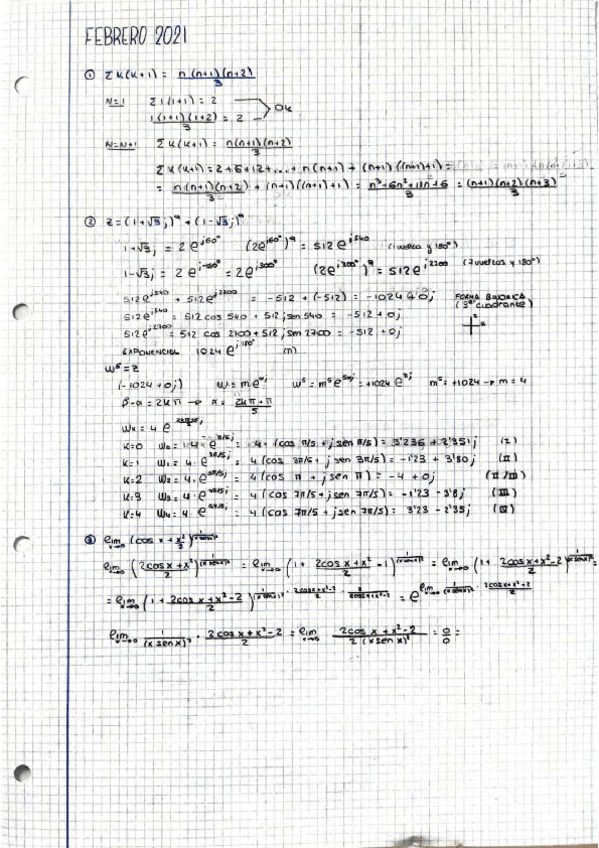 FEBRERO 2021
① Σ k(k+1) = n(n+1)(n+2)/3
N=1 Σ 1(1+1) = 2
1(1+1)(1+2)/3 = 2 Ok
N=N+1 Σ k(k+1) = n(n+1)(n+2)/3
Σ k(k+1) = 2+6+12+...+ n(n+1) + (n+1)((n+1)+1) =
= n(n+1)(n+2)/3 + (n+1)((n+1)+1) = n³+6n²+11n+6/3 = (n+1)(n+2)(n+3)/3
② z = (1+√3j)⁹ + (1-√3j)⁹
1+√3j = 2e^j60° (2e^j60°)⁹ = 512e^j540 (1 vuelta y 180°)
1-√3j = 2e^j-60° = 2e^j300° (2e^j300°)⁹ = 512e^j2700 (7 vueltas y 180°)
512e^j540 + 512e^j2700 = -512 + (-512) = -1024 + 0j FORMA BINÓMICA
512e^j540 = 512 cos 540 + 512 j sen 540 = -512 + 0j
512e^j2700 = 512 cos 2700 + 512 j sen 2700 = -512 + 0j
EXPONENCIAL 1024 e^j180°
w⁵ = z
(-1024+0j) w = me^αj w⁵ = m⁵e^5αj = +1024 e^πj m⁵ = +1024 → m = 4
K=0 w₀ = 4·e^π/5j = 4·(cos π/5 + j sen π/5) = 3'236 + 2'351j (I)
K=1 w₁ = 4·e^3π/5j = 4(cos 3π/5 + j sen 3π/5) = -1'23 + 3'80j (II)
K=2 w₂ = 4·e^5π/5j = 4(cos π + j sen π) = -4 + 0j (II/III)
K=3 w₃ = 4·e^7π/5j = 4(cos 7π/5 + j sen 7π/5) = -1'23 - 3'8j (III)
K=4 w₄ = 4·e = 4(cos 7π/5 + j sen 7π/5) = 3'23 - 2'35j (IV)
③ lim x→0 (cos x + x²/2)
lim x→0 (2cos x + x²/2) = lim x→0 (1 + 2cos x + x²/2 - 1) = lim x→0 (1 + 2cos x + x² - 2/2) =
= lim x→0 (1 + 2cos x + x² - 2/2) = e
lim x→0 1/(x sen x)² · 2cos x + x² - 2/2 = lim x→0 2cos x + x² - 2/2(x sen x)² = 0/0 =